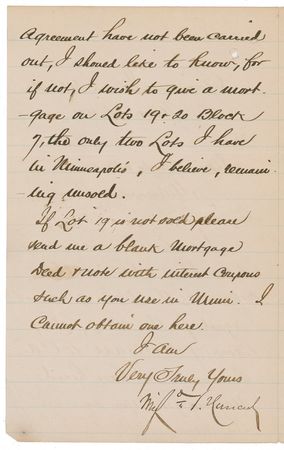 Agreement have not been carried
out, I should like to know, for
if not, I wish to give a mort-
gage on Lots 19 & 20 Block
7, the only two Lots I have
in Minneapolis, I believe, remain-
ing unsold.
If Lot 19 is not sold please
send me a blank Mortgage
Deed & note with interest Coupons
such as you use in Minn. I
Cannot obtain one here.
I am
Very Truly Yours